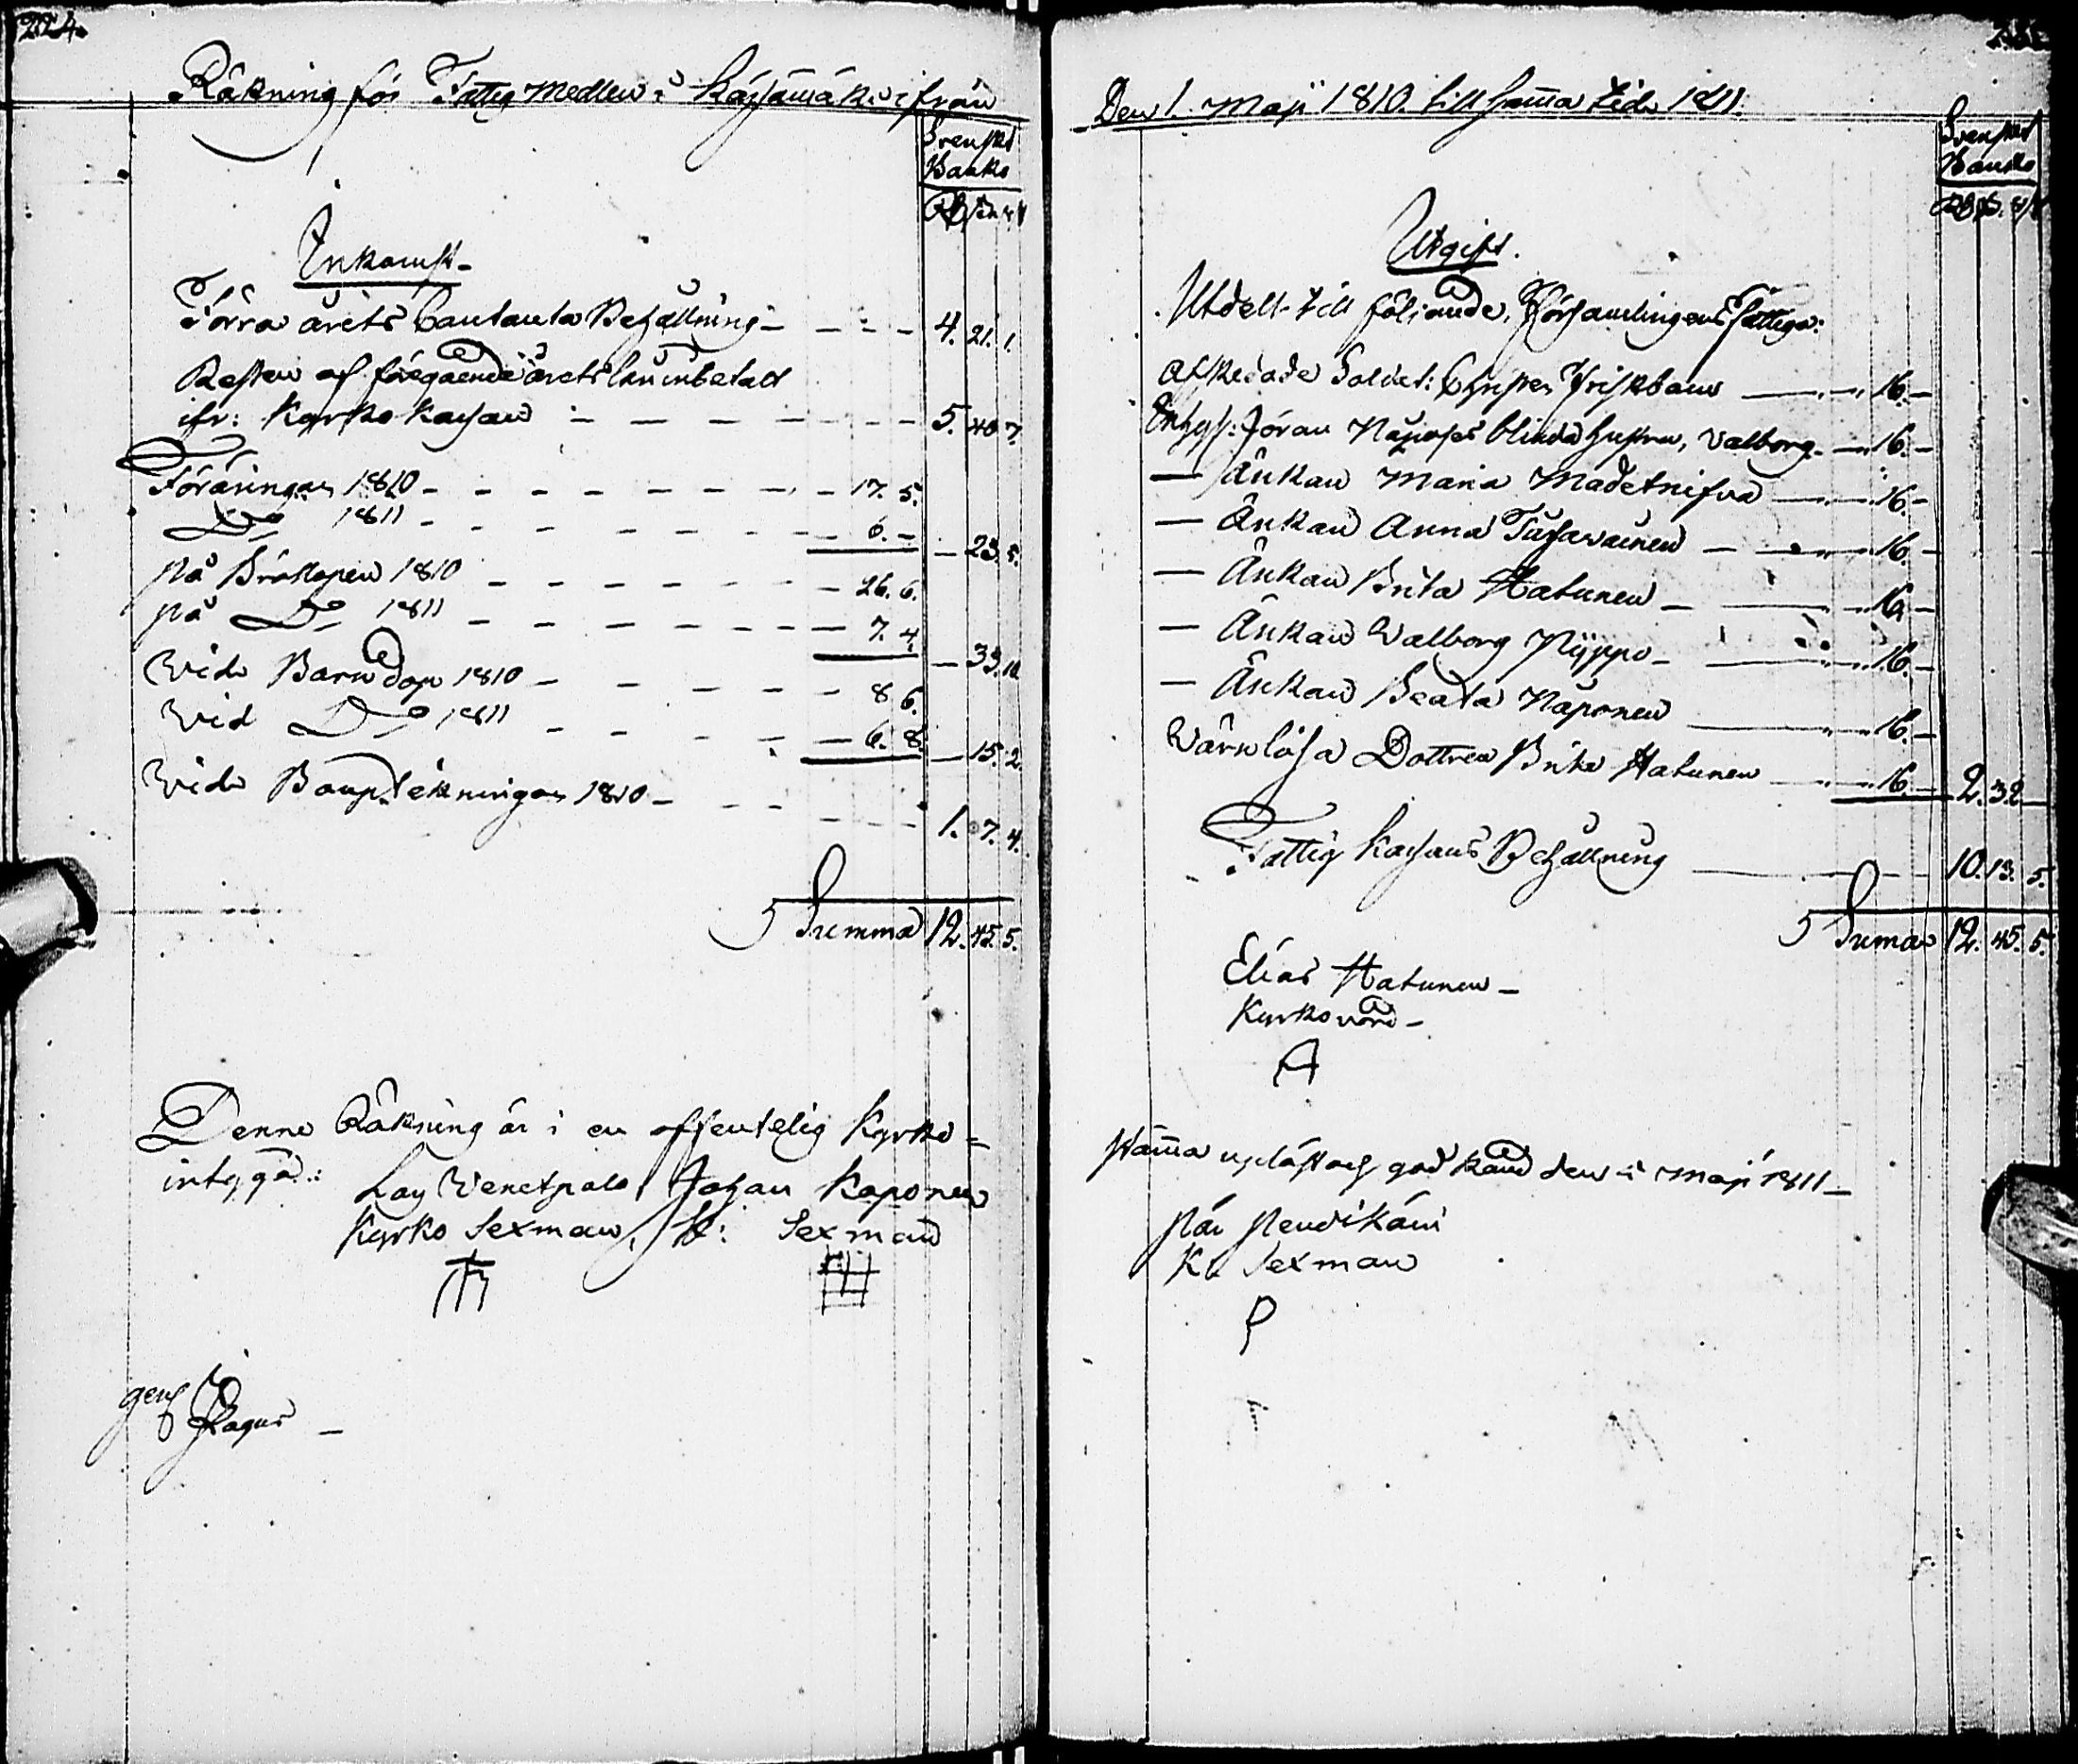 224.
Räkning för Fattig Medlen i Kärsämäki ifrån
Svenskt
Banko
Inkomst
Förra årets Contanta Behållning 4. 21. 1.
Resten af föregående årets lån inbetalt
ifr: Kyrko Kassan 5. 40. 7.
Föräringar 1810 17. 5.
Do 1811 6. - 23. 5.
på Bröllopen 1810 26. 6.
på Do 1811 7. 4. 33. 10
Wid Barndop 1810 8. 6.
Wid Do 1811 6. 8. 15. 2.
Wid 1810
1. 7. 4.
Summa 12. 45. 5.
Denne Räkning är i en offentelig Kyrko=
intygad:
Lars Wenetpalo Johan Kaponen
Kyrko Sexman, Sexman
Den 1. Maji 1810. till samma tid 1811.
Svenskt
Banko
Utgift.
Utdelt till följande Församlingens fattiga:
Afskedade Soldat: Christer Friskbom 16.
Inhys: Jöran Näposes blinda hustru, Valborg 16.
— Änkan Maria Madetniska 16.
— Änkan Anna 16.
— Änkan Brita Hatunen 16.
— Änkan Walborg Nyppo 16.
— Änkan Beata Näponen 16.
Wärnlösa Dottren Brita Hatunen 16. 2. 32.
Fattig Kassans Behållning 10. 13. 5.
Summa 12. 45. 5.
Elias Hatunen
Kyrkovärd
A
Stämma upläst och god känd den Maji 1811
Pär
K: Sexman
P